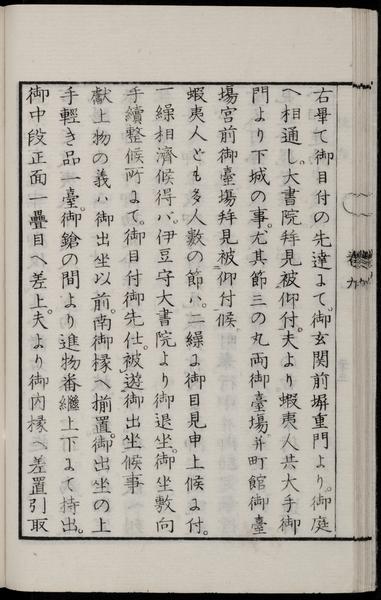 右畢て御目付の先達にて。御玄関前塀重門より。御庭
へ相通し。大書院拜見被仰付。夫より蝦夷人共大手御
門より下城の事。尤其節三の丸両御臺場。并町館御臺
場宮前御臺場拜見被仰付候
蝦夷人ども多人数の節ハ。二繰に御目見申上候に付。
一繰相濟候得バ。伊豆守大書院より御退坐。御坐敷向
手續整候所にて。御目付御先仕。被遊御出坐候事
獻上物の義ハ御出坐以前。南御椽へ揃置。御出坐の上
手軽き品一臺。御鎗の間より進物番繼上下にて持出。
御中段正面一疊目へ差上。夫より御内椽へ差置引取
巻九